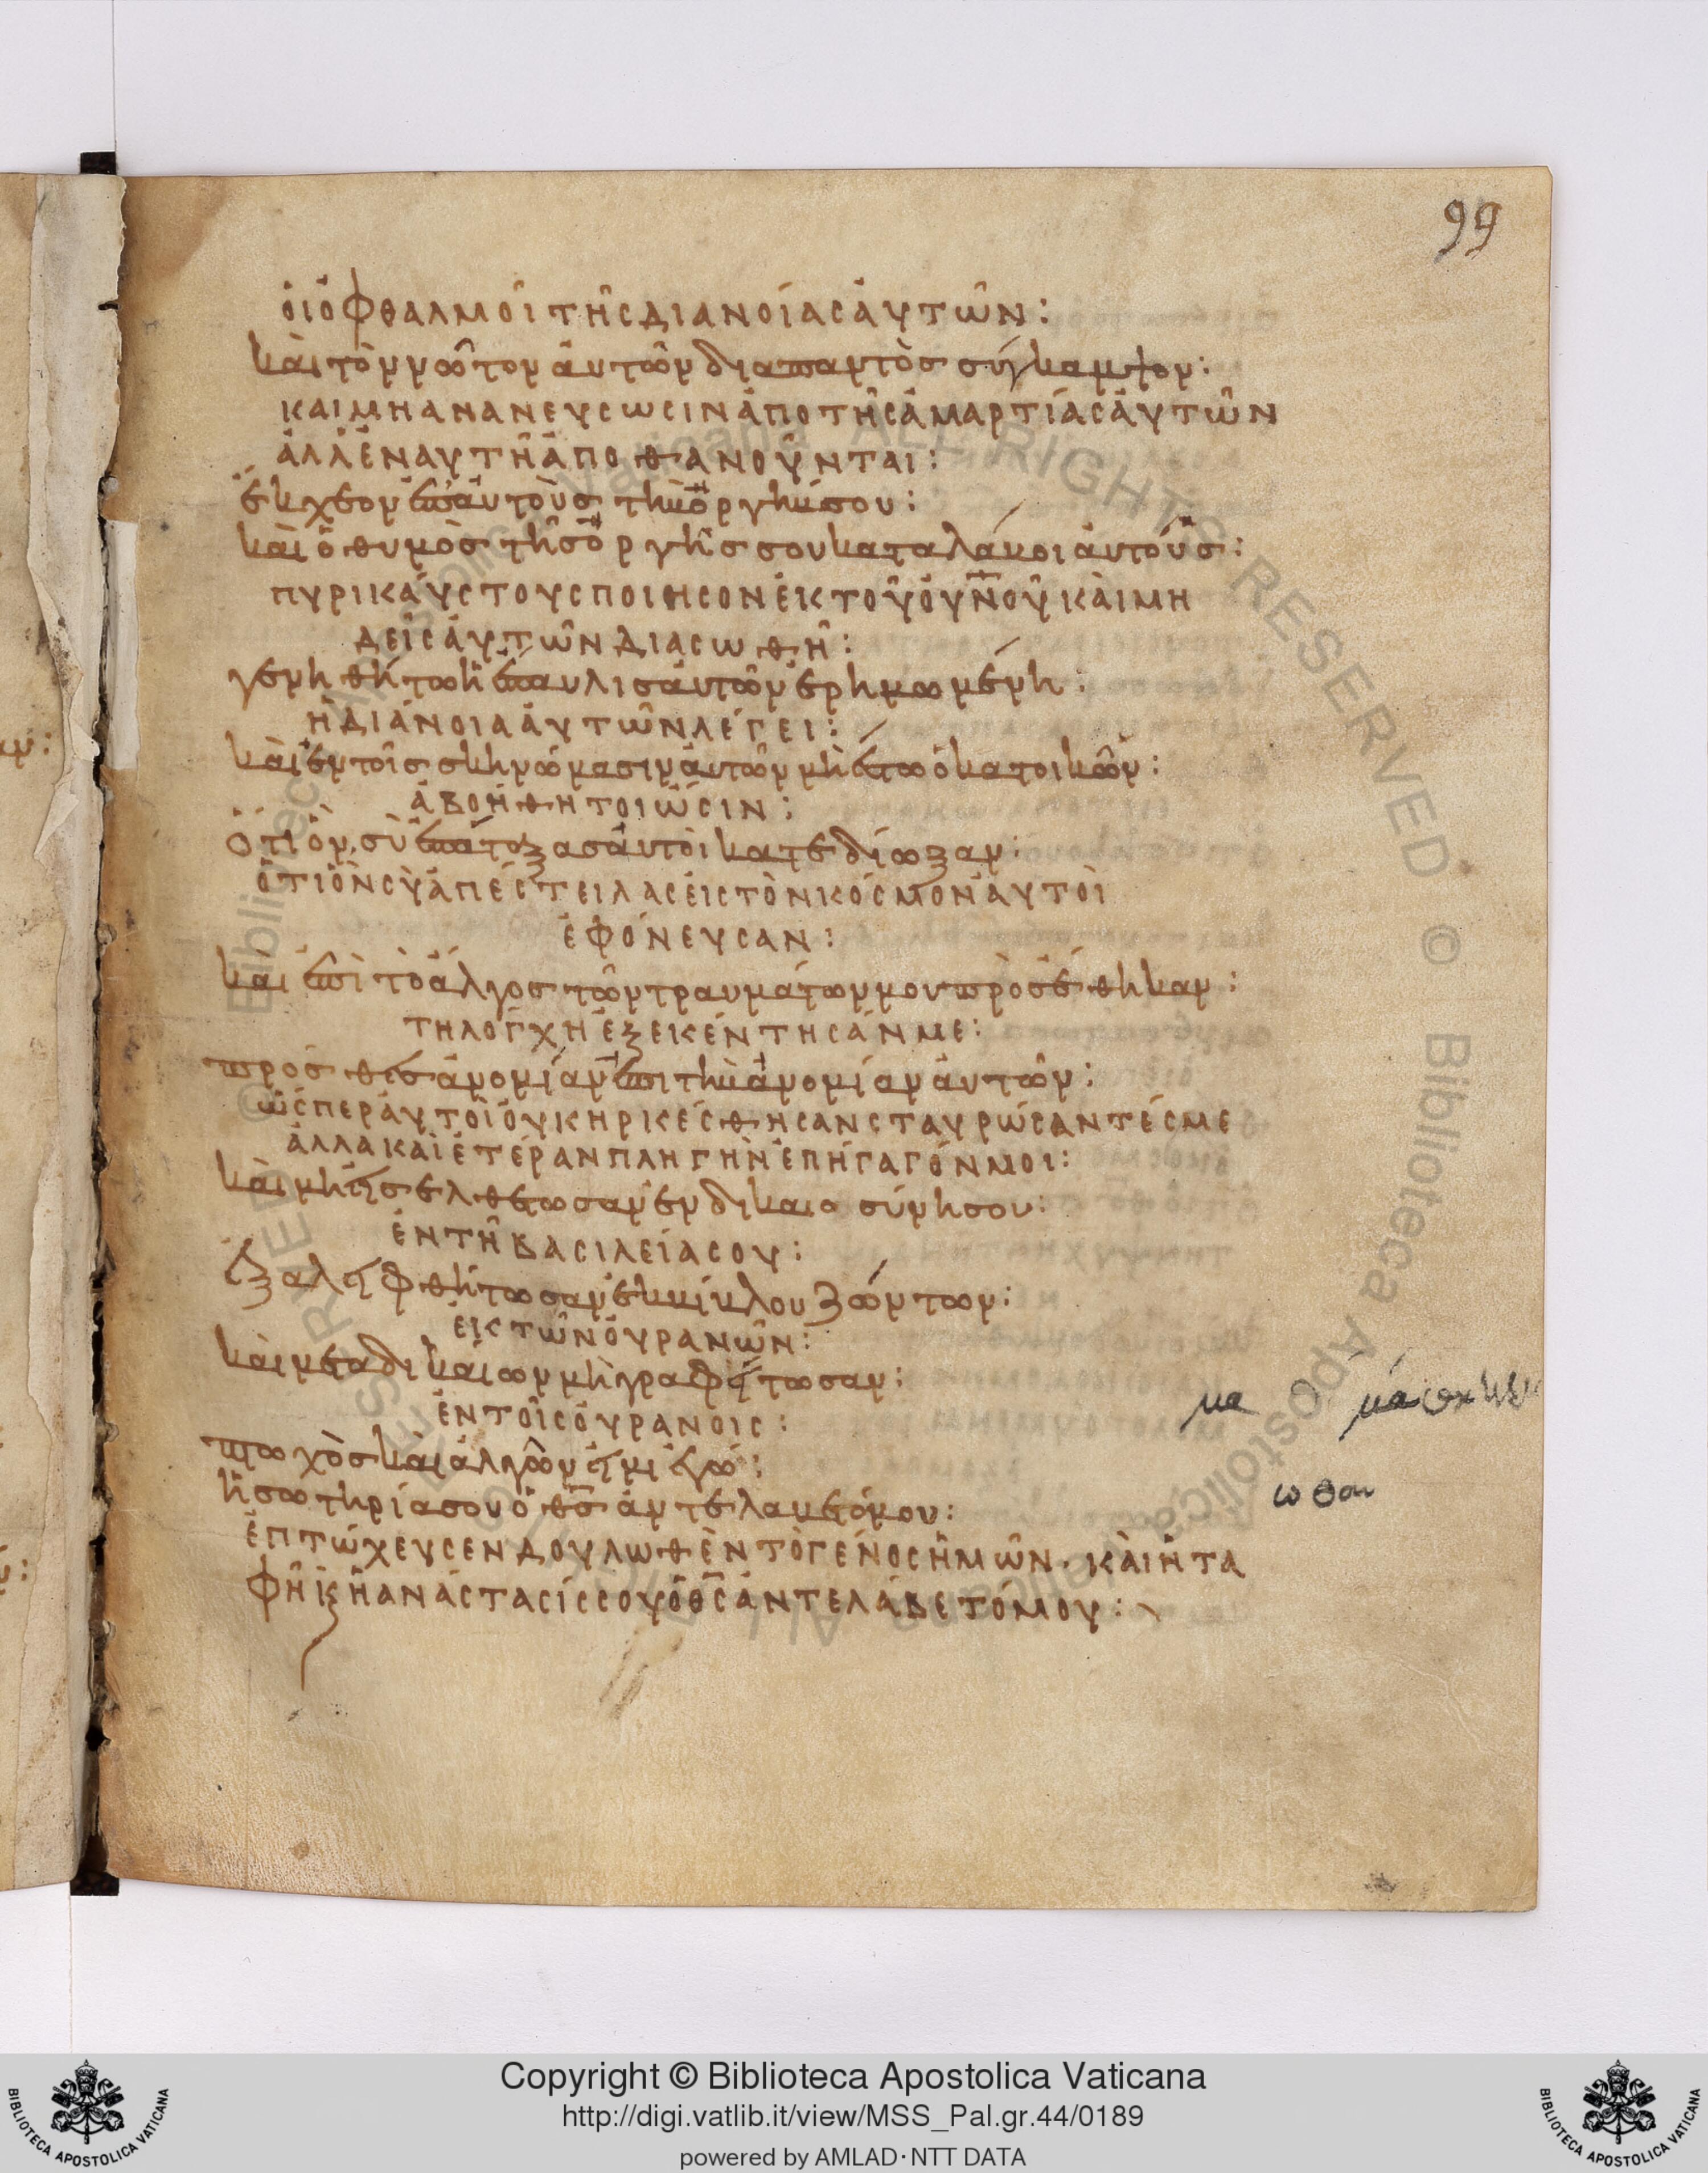 99
ὁι ὀφθαλμοὶ τῆς διανοίας ἀυτῶν:
κὰι τὸν νῶτον ἀυτῶν διαπαντὸς σύγκαμψον:
και μη ανανευσωσιν ἀπο τῆς ἁμαρτίας ἀυτῶν
ἀλλ ἐν αυτῆ ἀποθανοῦνται:
ἔκχεον ἐπ ἀυτοὺς τὴν ὀργήν σου:
κὰι ὁ θυμὸς τῆς ὀργῆς σου καταλάβοι ἀυτούς:
πυρικάυστους ποιησον ἐκ τοῦ ὀυνοῦ κὰι μη
δεὶς ἀυτῶν διασωθῆ:
γενηθήτω ἡ ἔπαυλις ἀυτῶν ἐρημωμένη:
ἡ διάνοια ἀυτῶν λέγει:
κὰι ἐν τοῖς σκηνώμασιν ἀυτῶν μὴ ἔστω ὁ κατοικῶν:
ἀβοήθητοι ὦσιν:
ὅτι ὃν σὺ ἐπάταξας ἀυτοὶ κατεδίωξαν:
ὅτι ὃν σὺ ἀπέστειλας ἐις τὸν κόσμον ἀυτοὶ
ἐφόνευσαν:
κὰι ἐπὶ τὸ ἄλγος τῶν τραυμάτων μου προσέθηκαν:
τη λόγχη ἐξεκέντησάν με:
πρόσθες ἀνομίαν ἐπι τὴν ἀνομίαν ἀυτῶν:
ὥσπερ ἀυτοὶ ὀυκ ηρκέσθησαν σταυρώσαντές με
ἀλλα καὶ ἑτέραν πληγὴν ἐπήγαγόν μοι:
κὰι μὴ εἰσελθέτωσαν ἐν δικαιοσύνη σου:
ἐν τῆ βασιλεία σου:
ἐξαλειφθήτωσαν ἐκ βίβλου ζώντων:
ἐκ τῶν ὀυρανῶν:
κὰι μετα δικαίων μὴ γραφήτωσαν:
ἐν τοῖς ὀυρανοις:
πτωχὸς κὰι ἀλγῶν εἰμι ἐγώ:
ἡ σωτηρία σου ὁ θς ἀντελάβετό μου:
ἐπτώχευσεν δουλωθὲν τὸ γένος ἡμῶν. κὰι ἡ τα
φὴ κ ἡ ανάστασίς σου ὁ θς ἀντελάβετό μου:
μα
ωθαν
Copyright © Biblioteca Apostolica Vaticana
http://digi.vatlib.it/view/MSS_Pal.gr.44/0189
powered by AMLAD·NTT DATA
BIBLIOTECA APOSTOLICA VATICANA
BIBLIOTECA APOSTOLICA VATICANA